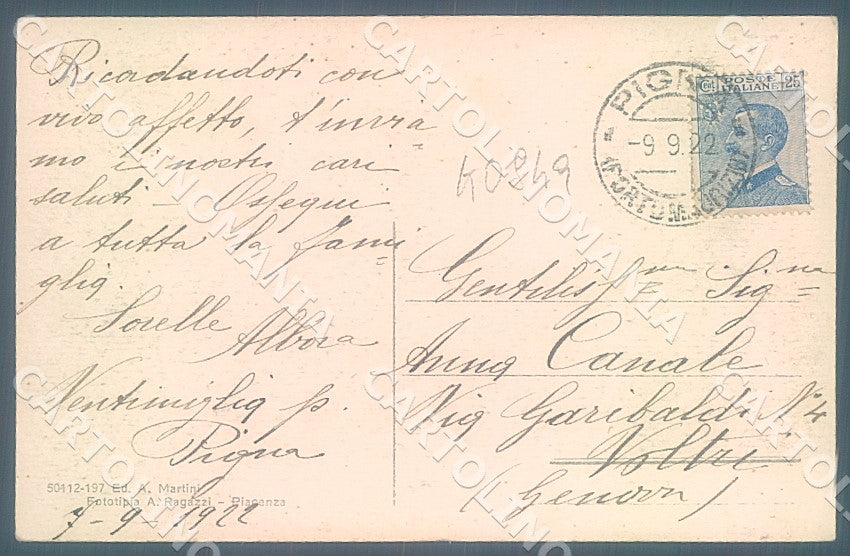 Ricordandoti con
vivo affetto, t'invia-
mo i nostri cari
saluti - Ossequi
a tutta la fami-
glia.
Sorelle
Albora
Ventimiglia p.
Pigna
50412-197 Ed. A. Martini
Fototipia A. Ragazzi - Piacenza
7-9-1922
PIGNA
-9.9.22
(PORTO MAURIZIO)
Cent. POSTE ITALIANE 25
Gentiliss.ma Sig.na
Anna Canale
Via Garibaldi N°4
Voltri
(Genova)
CARTOLINOMANIA